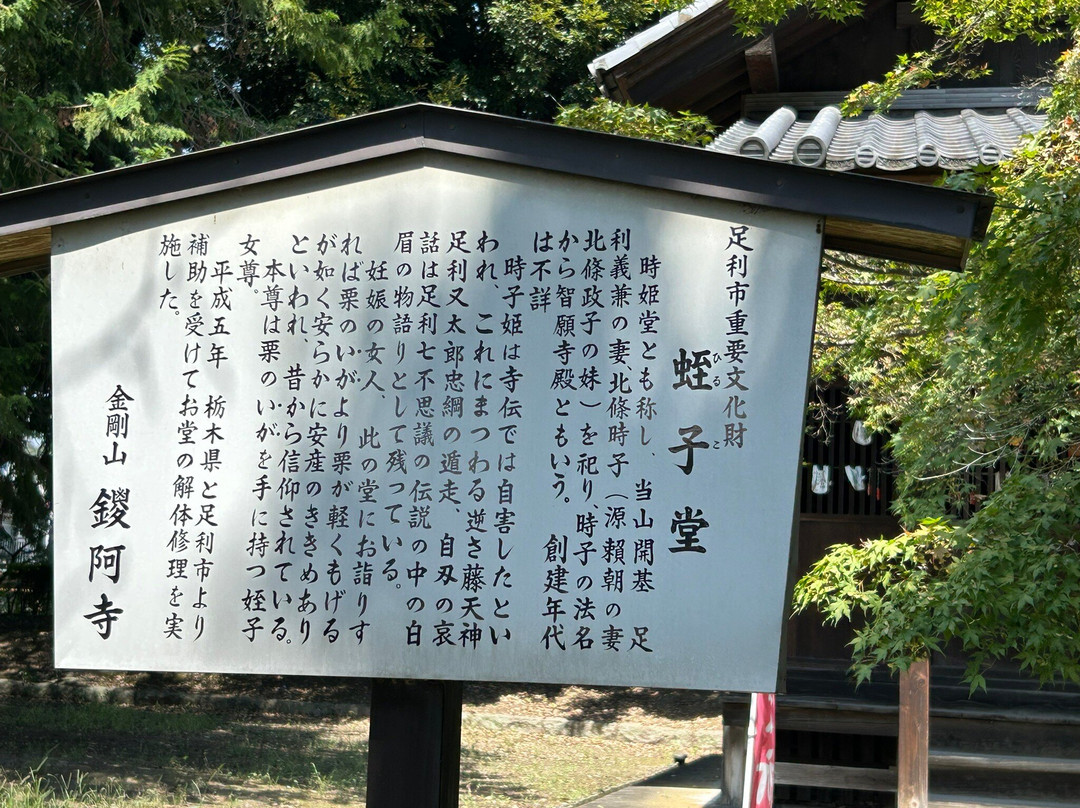 足利市重要文化財
蛭子堂
ひること
時姫堂とも称し、当山開基　足
利義兼の妻、北條時子（源賴朝の妻
北條政子の妹）を祀り、時子の法名
から智願寺殿ともいう。　創建年代
は不詳
時子姫は寺伝では自害したとい
われ、これにまつわる逆さ藤天神
足利又太郎忠綱の遁走、自刃の哀
話は足利七不思議の伝説の中の白
眉の物語りとして残っている。
妊娠の女人、　此の堂にお詣りす
れば栗のいがより栗が軽くもげる
が如く安らかに安産のききめあり
といわれ、昔から信仰されている。
本尊は栗のいがを手に持つ姪子
女尊。
平成五年　栃木県と足利市より
補助を受けてお堂の解体修理を実
施した。
金剛山　鑁阿寺